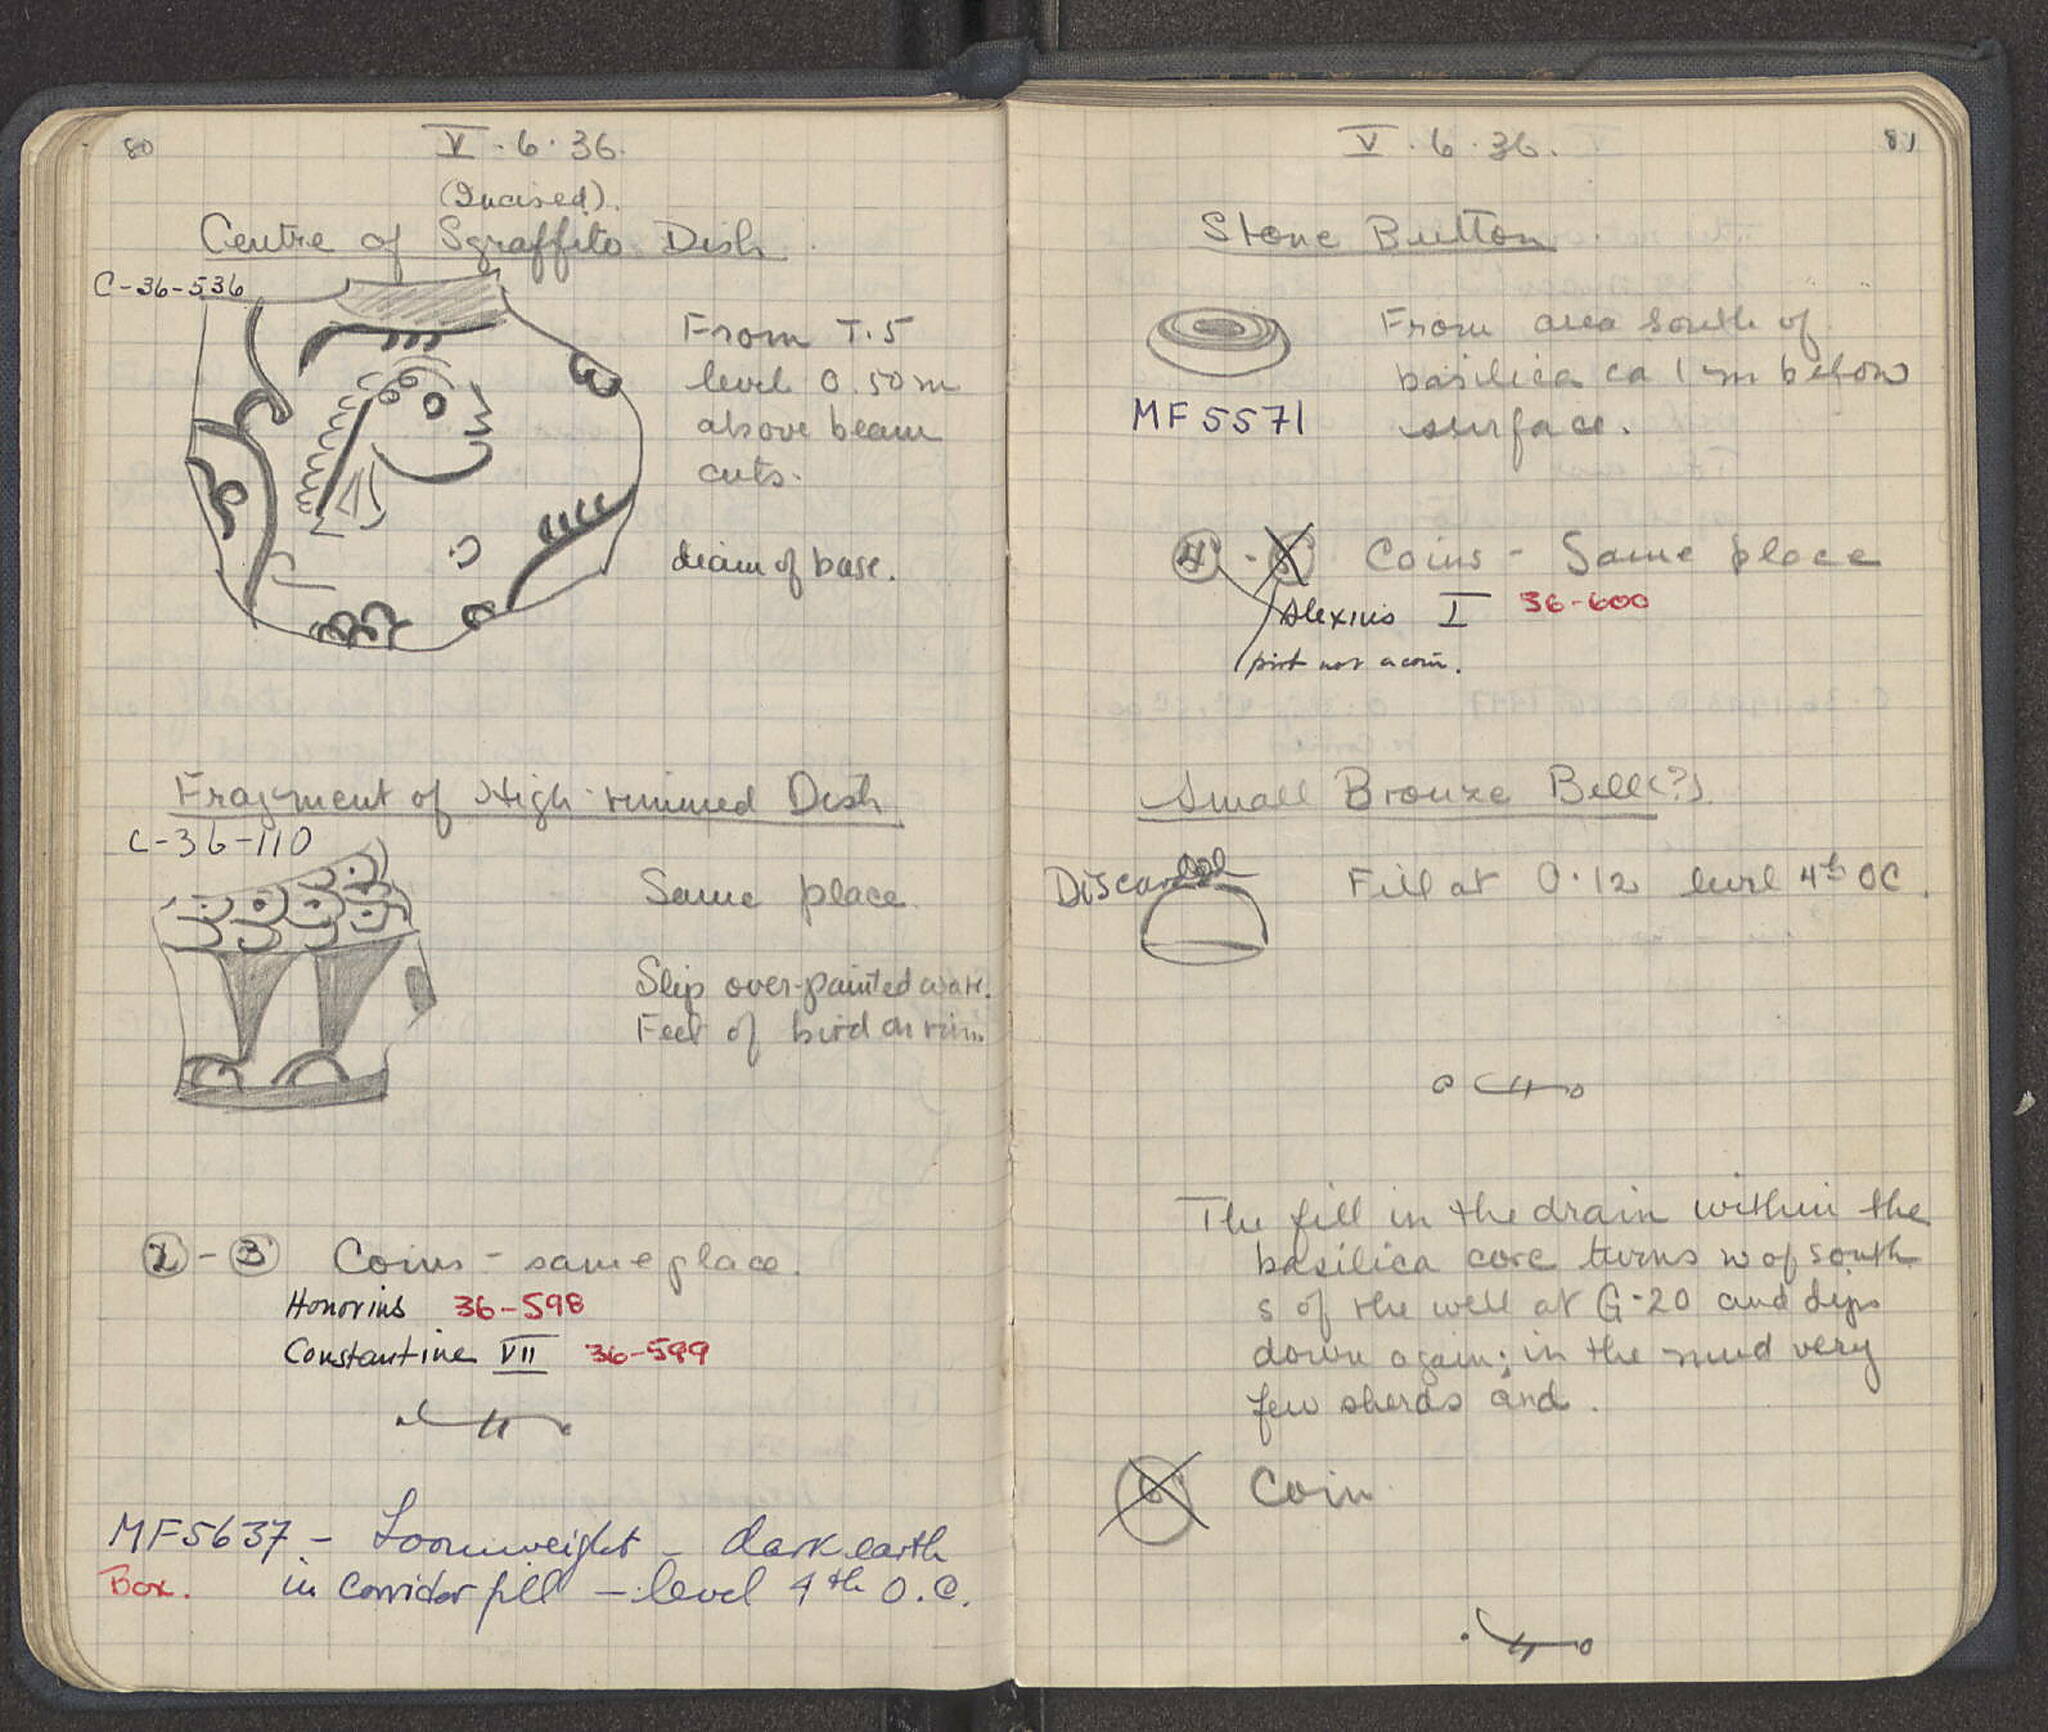 80
V . 6 . 36.
(Incised).
Centre of Sgraffito Dish
C-36-536
From T.5
level 0.50 m
above beam
cuts.
diam of base.
Fragment of High-rimmed Dish
C-36-110
Same place
Slip over-painted ware.
Feet of bird on rim.
2 - 3 Coins - same place.
Honorius 36-598
Constantine VII 36-599
MF5637 - Loomweight - dark earth
Box. in corridor fill - level 4th O.C.
V . 6 . 36.
81
Stone Button
From area south of
basilica ca 1 m below
surface.
MF 5571
4 - 5 Coins - Same place
Alexius I 36-600
not a coin.
Small Bronze Bell(?)
Discarded
Fill at 0.12 level 4th OC.
The fill in the drain within the
basilica core turns w of south
s of the well at G-20 and dips
down again; in the mud very
few sherds and.
6 Coin